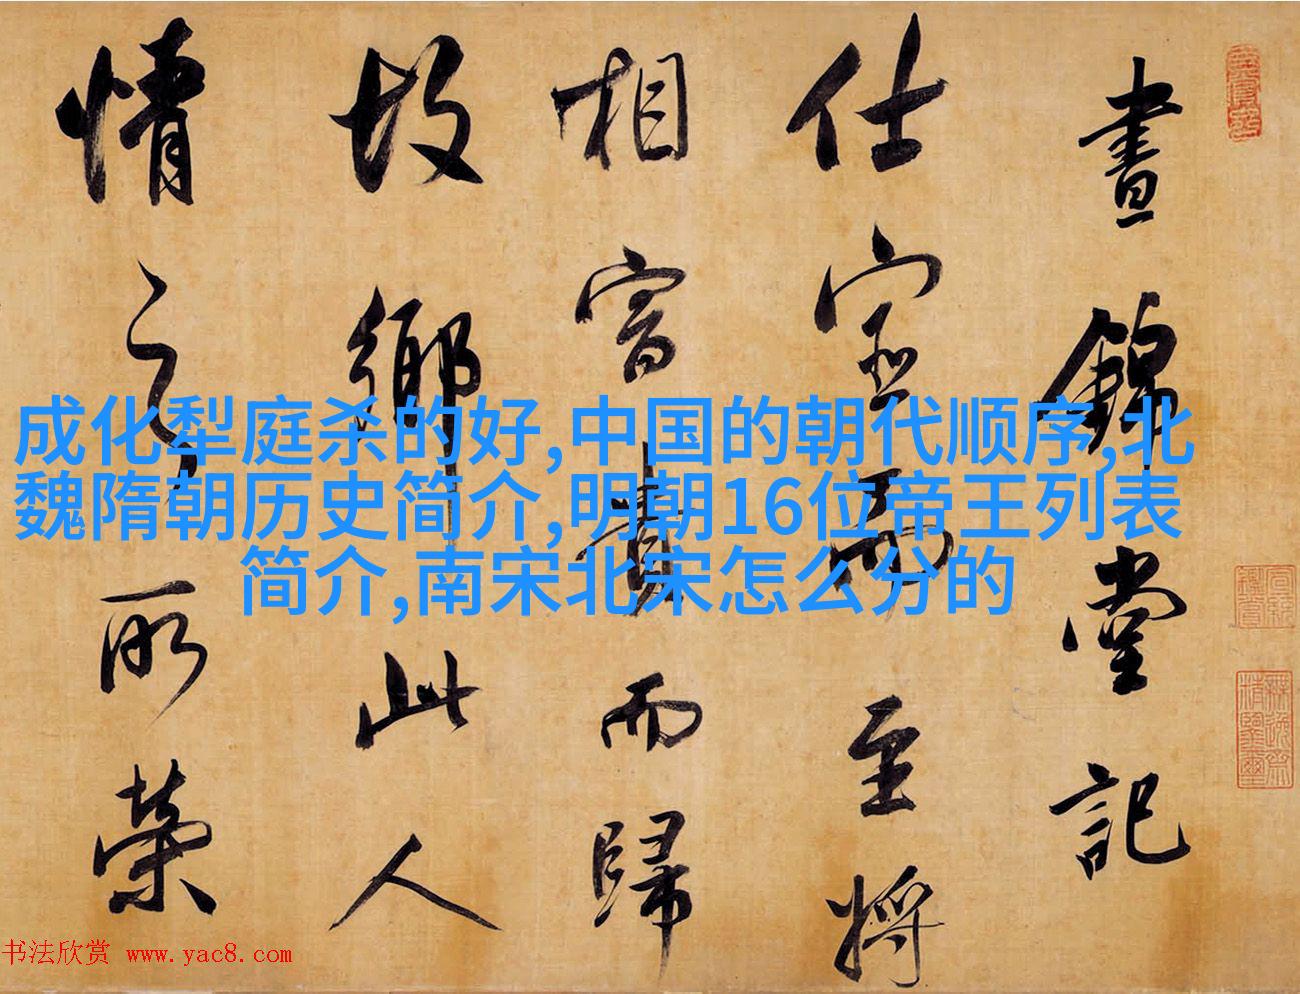 晝錦堂記
仕宦而至將
相富貴而歸
故鄉此人
情之所榮
成化犁庭杀的好,中国的朝代顺序,北
魏隋朝历史简介,明朝16位帝王列表
简介,南宋北宋怎么分的
书法欣赏 www.yac8.com